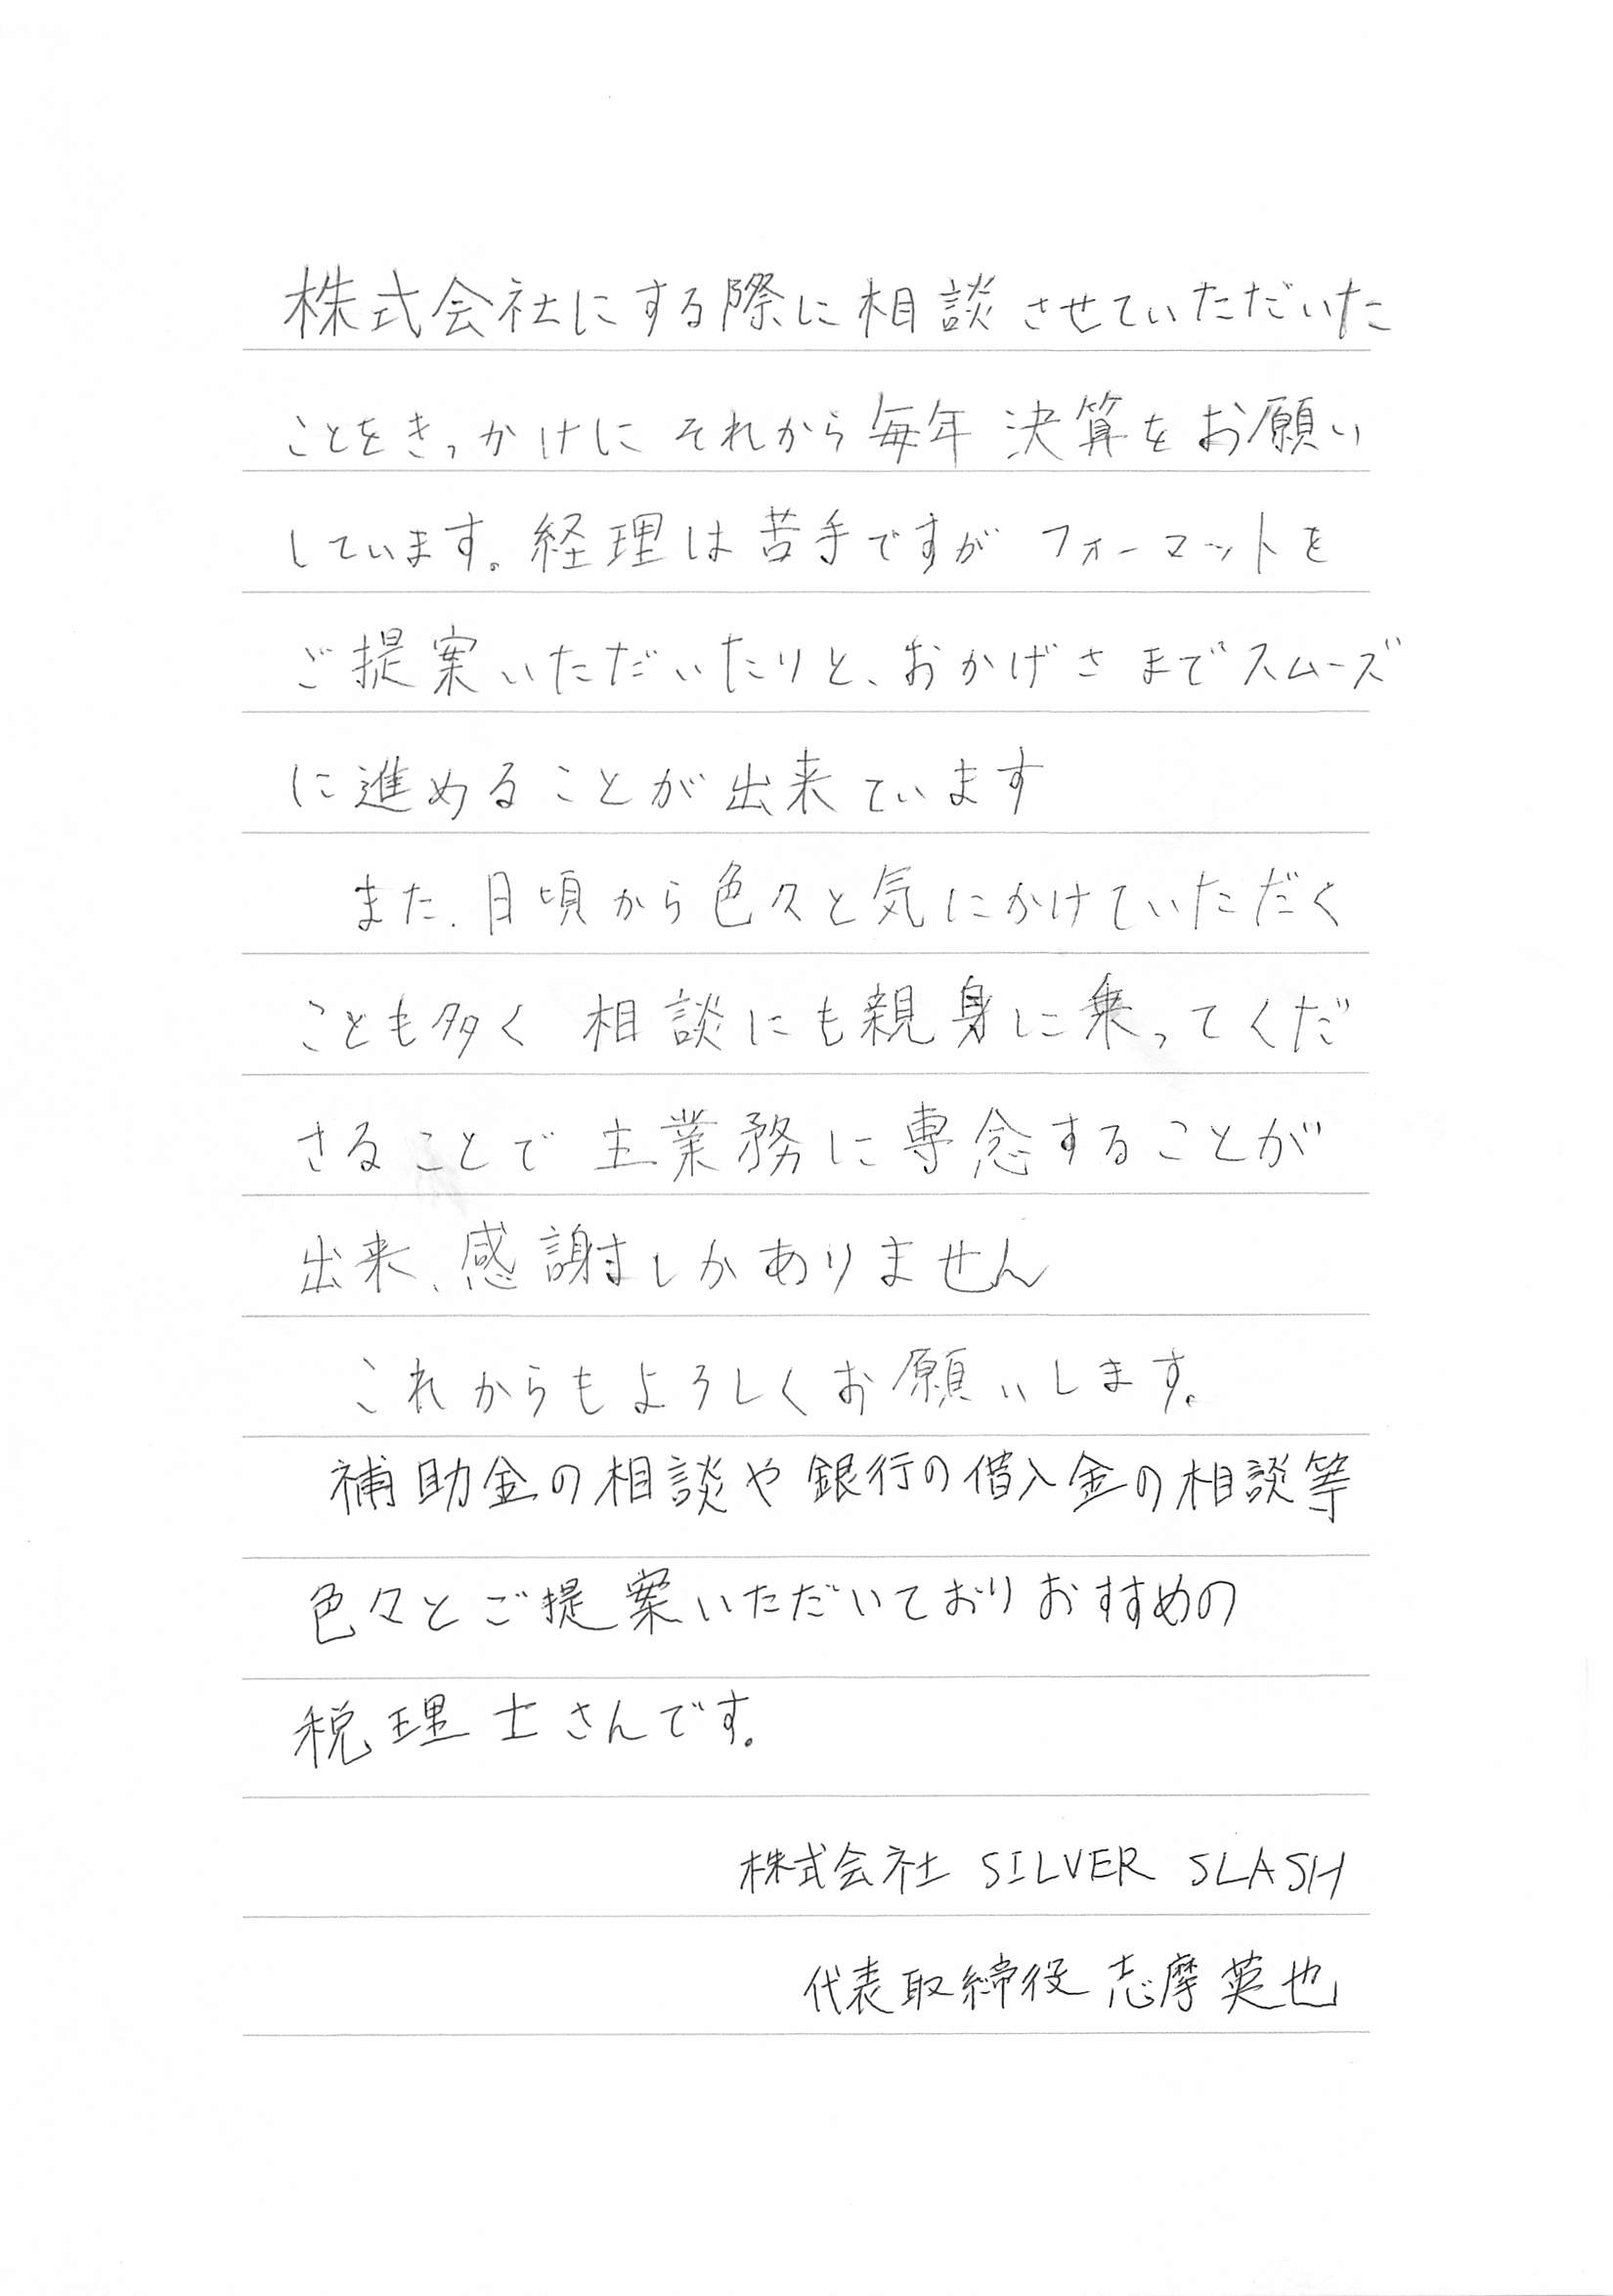 株式会社にする際に相談させていただいた
ことをきっかけに それから毎年 決算をお願い
しています。経理は苦手ですが フォーマットを
ご提案いただいたりと、おかげさまでスムーズ
に進めることが出来ています
また、日頃から色々と気にかけていただく
ことも多く 相談にも親身に乗ってくだ
さることで 主業務に専念することが
出来、感謝しかありません
これからもよろしくお願いします。
補助金の相談や銀行の借入金の相談等
色々とご提案いただいておりおすすめの
税理士さんです。
株式会社 SILVER SLASH
代表取締役 志摩英也